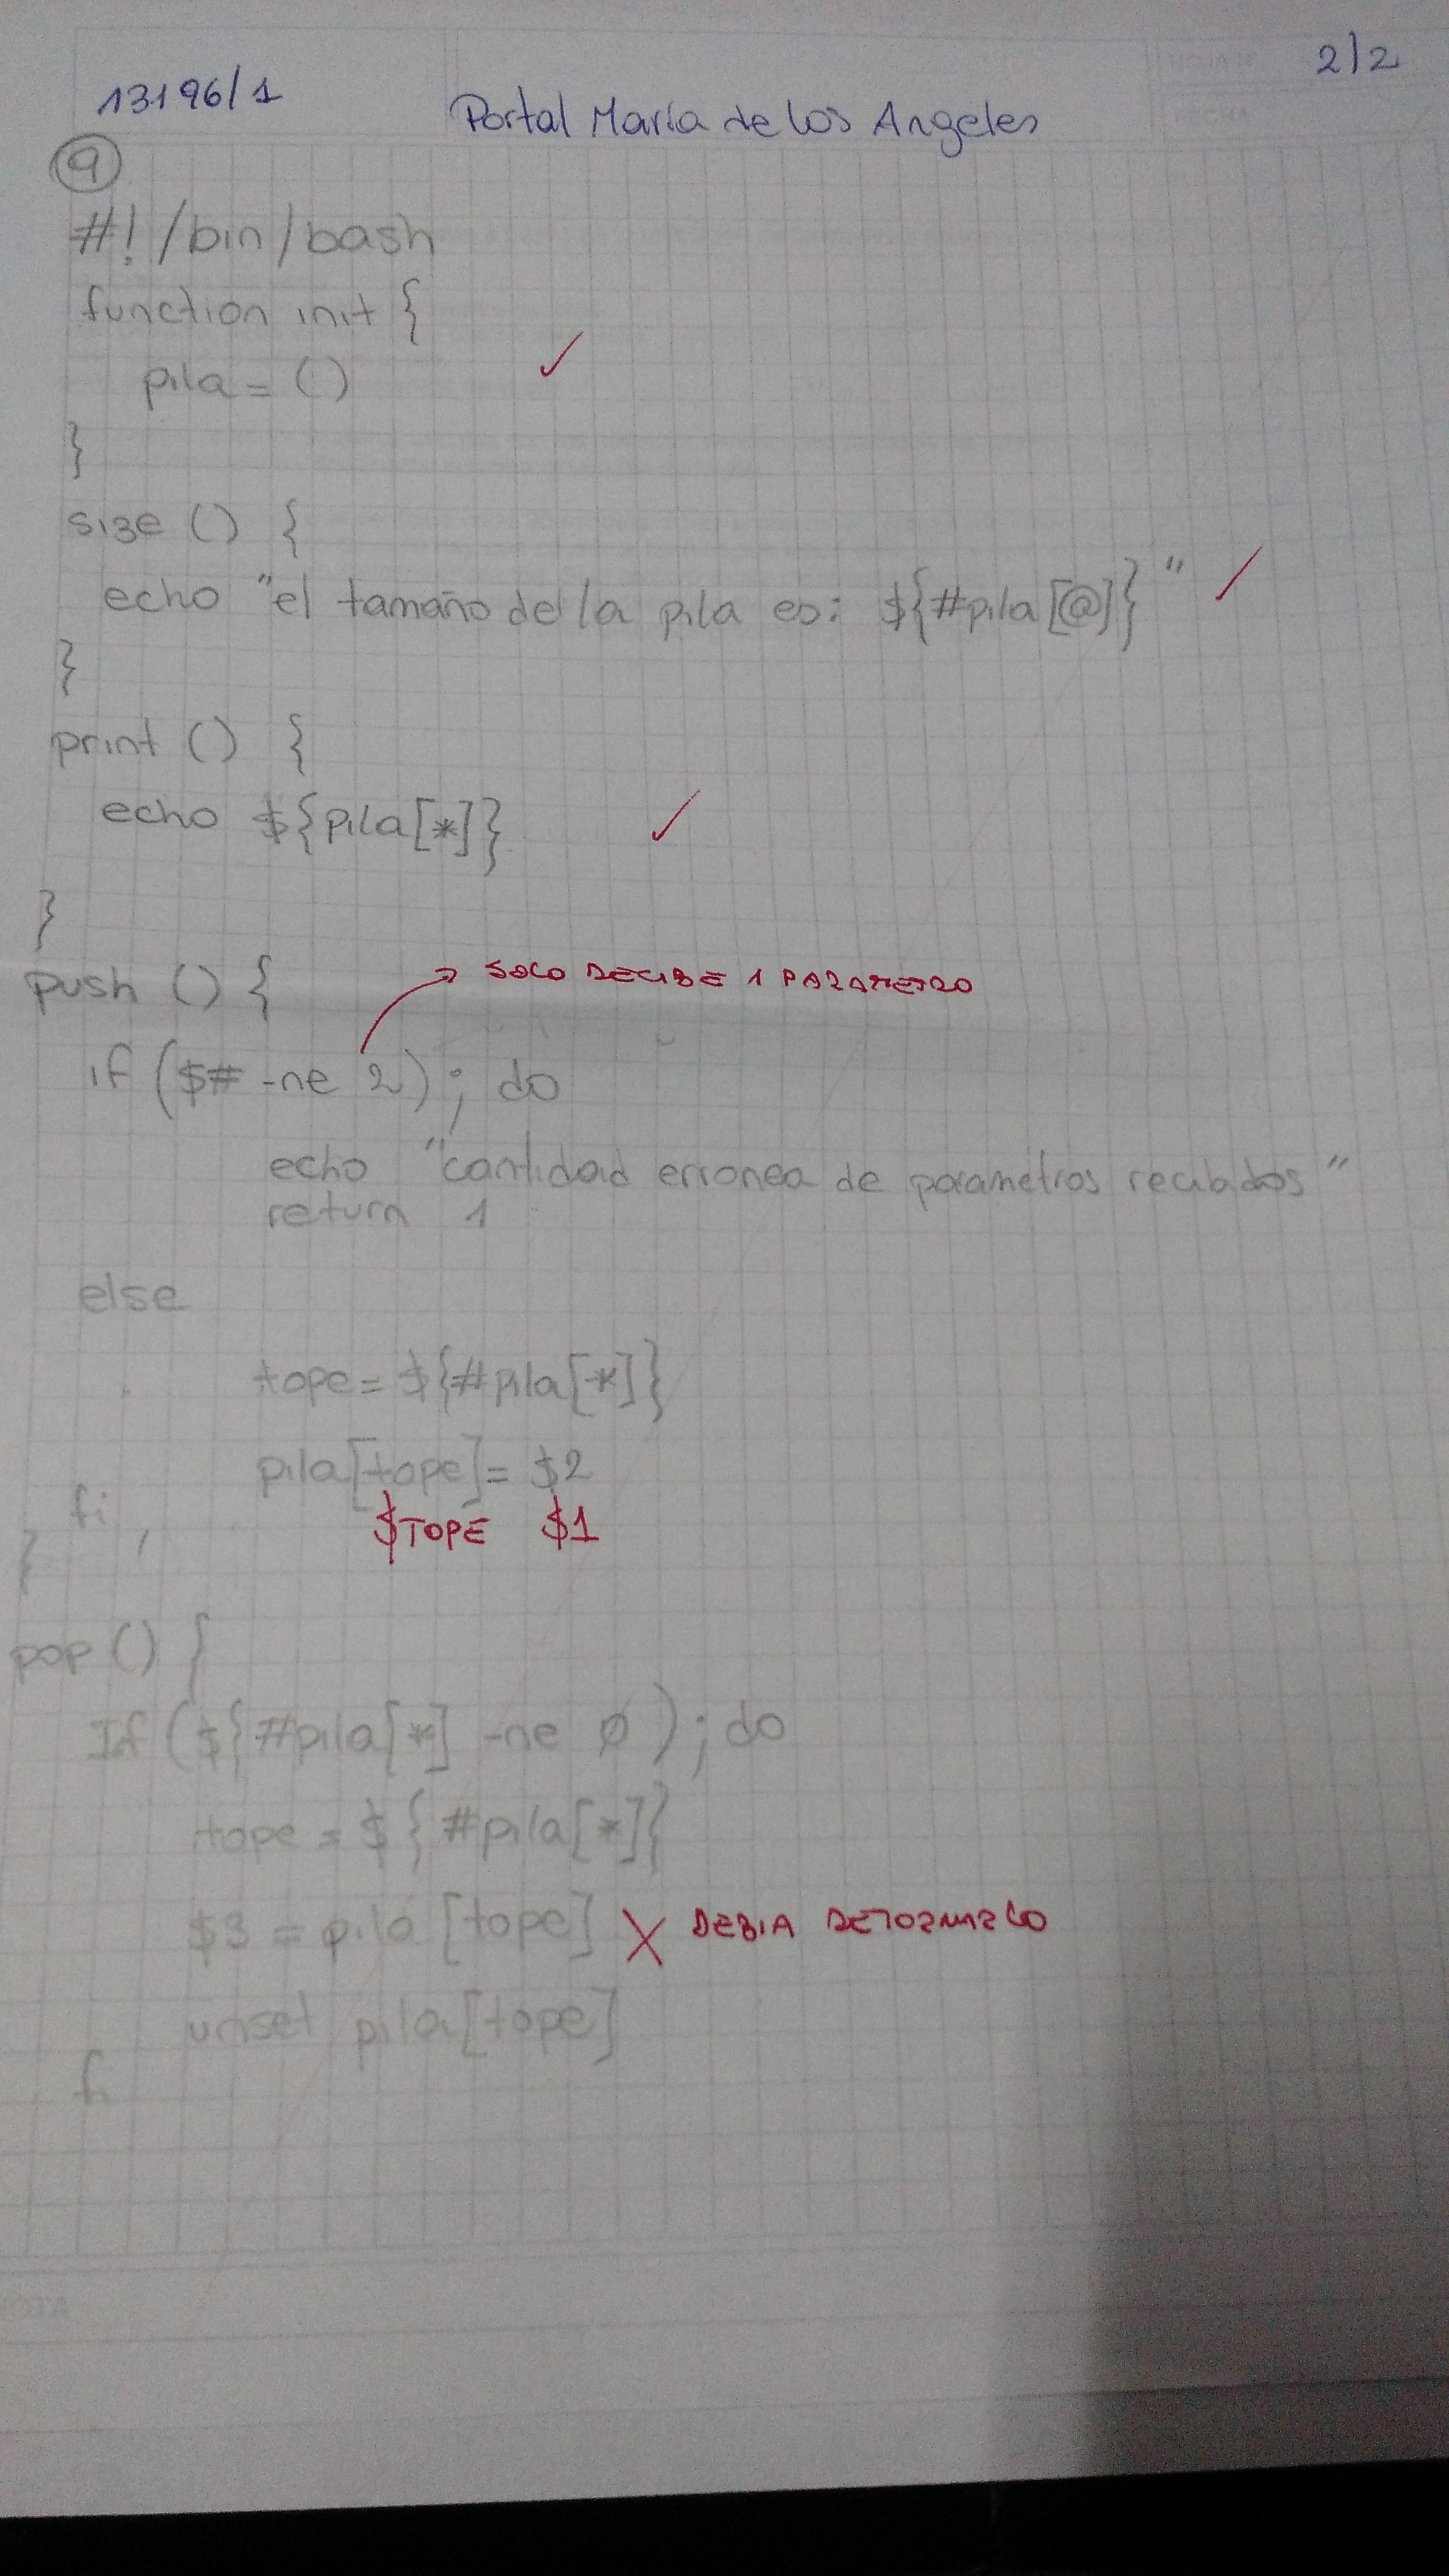 2/2
13196/1
Portal María de los Angeles
9
#!/bin/bash
function init {
pila = ()
}
size () {
echo "el tamaño de la pila es: ${#pila[@]}"
}
print () {
echo ${pila[*]}
}
push () {
SOLO RECIBE 1 PARAMETRO
if ($# -ne 2); do
echo "cantidad erronea de parametros recibidos"
return 1
else
tope = ${#pila[*]}
pila[tope] = $2
fi,
$TOPE $1
}
pop () {
If (${#pila[*] -ne 0); do
tope = ${#pila[*]}
$3 = pila [tope] X DEBIA RETORNARLO
unset pila[tope]
fi
NOTA